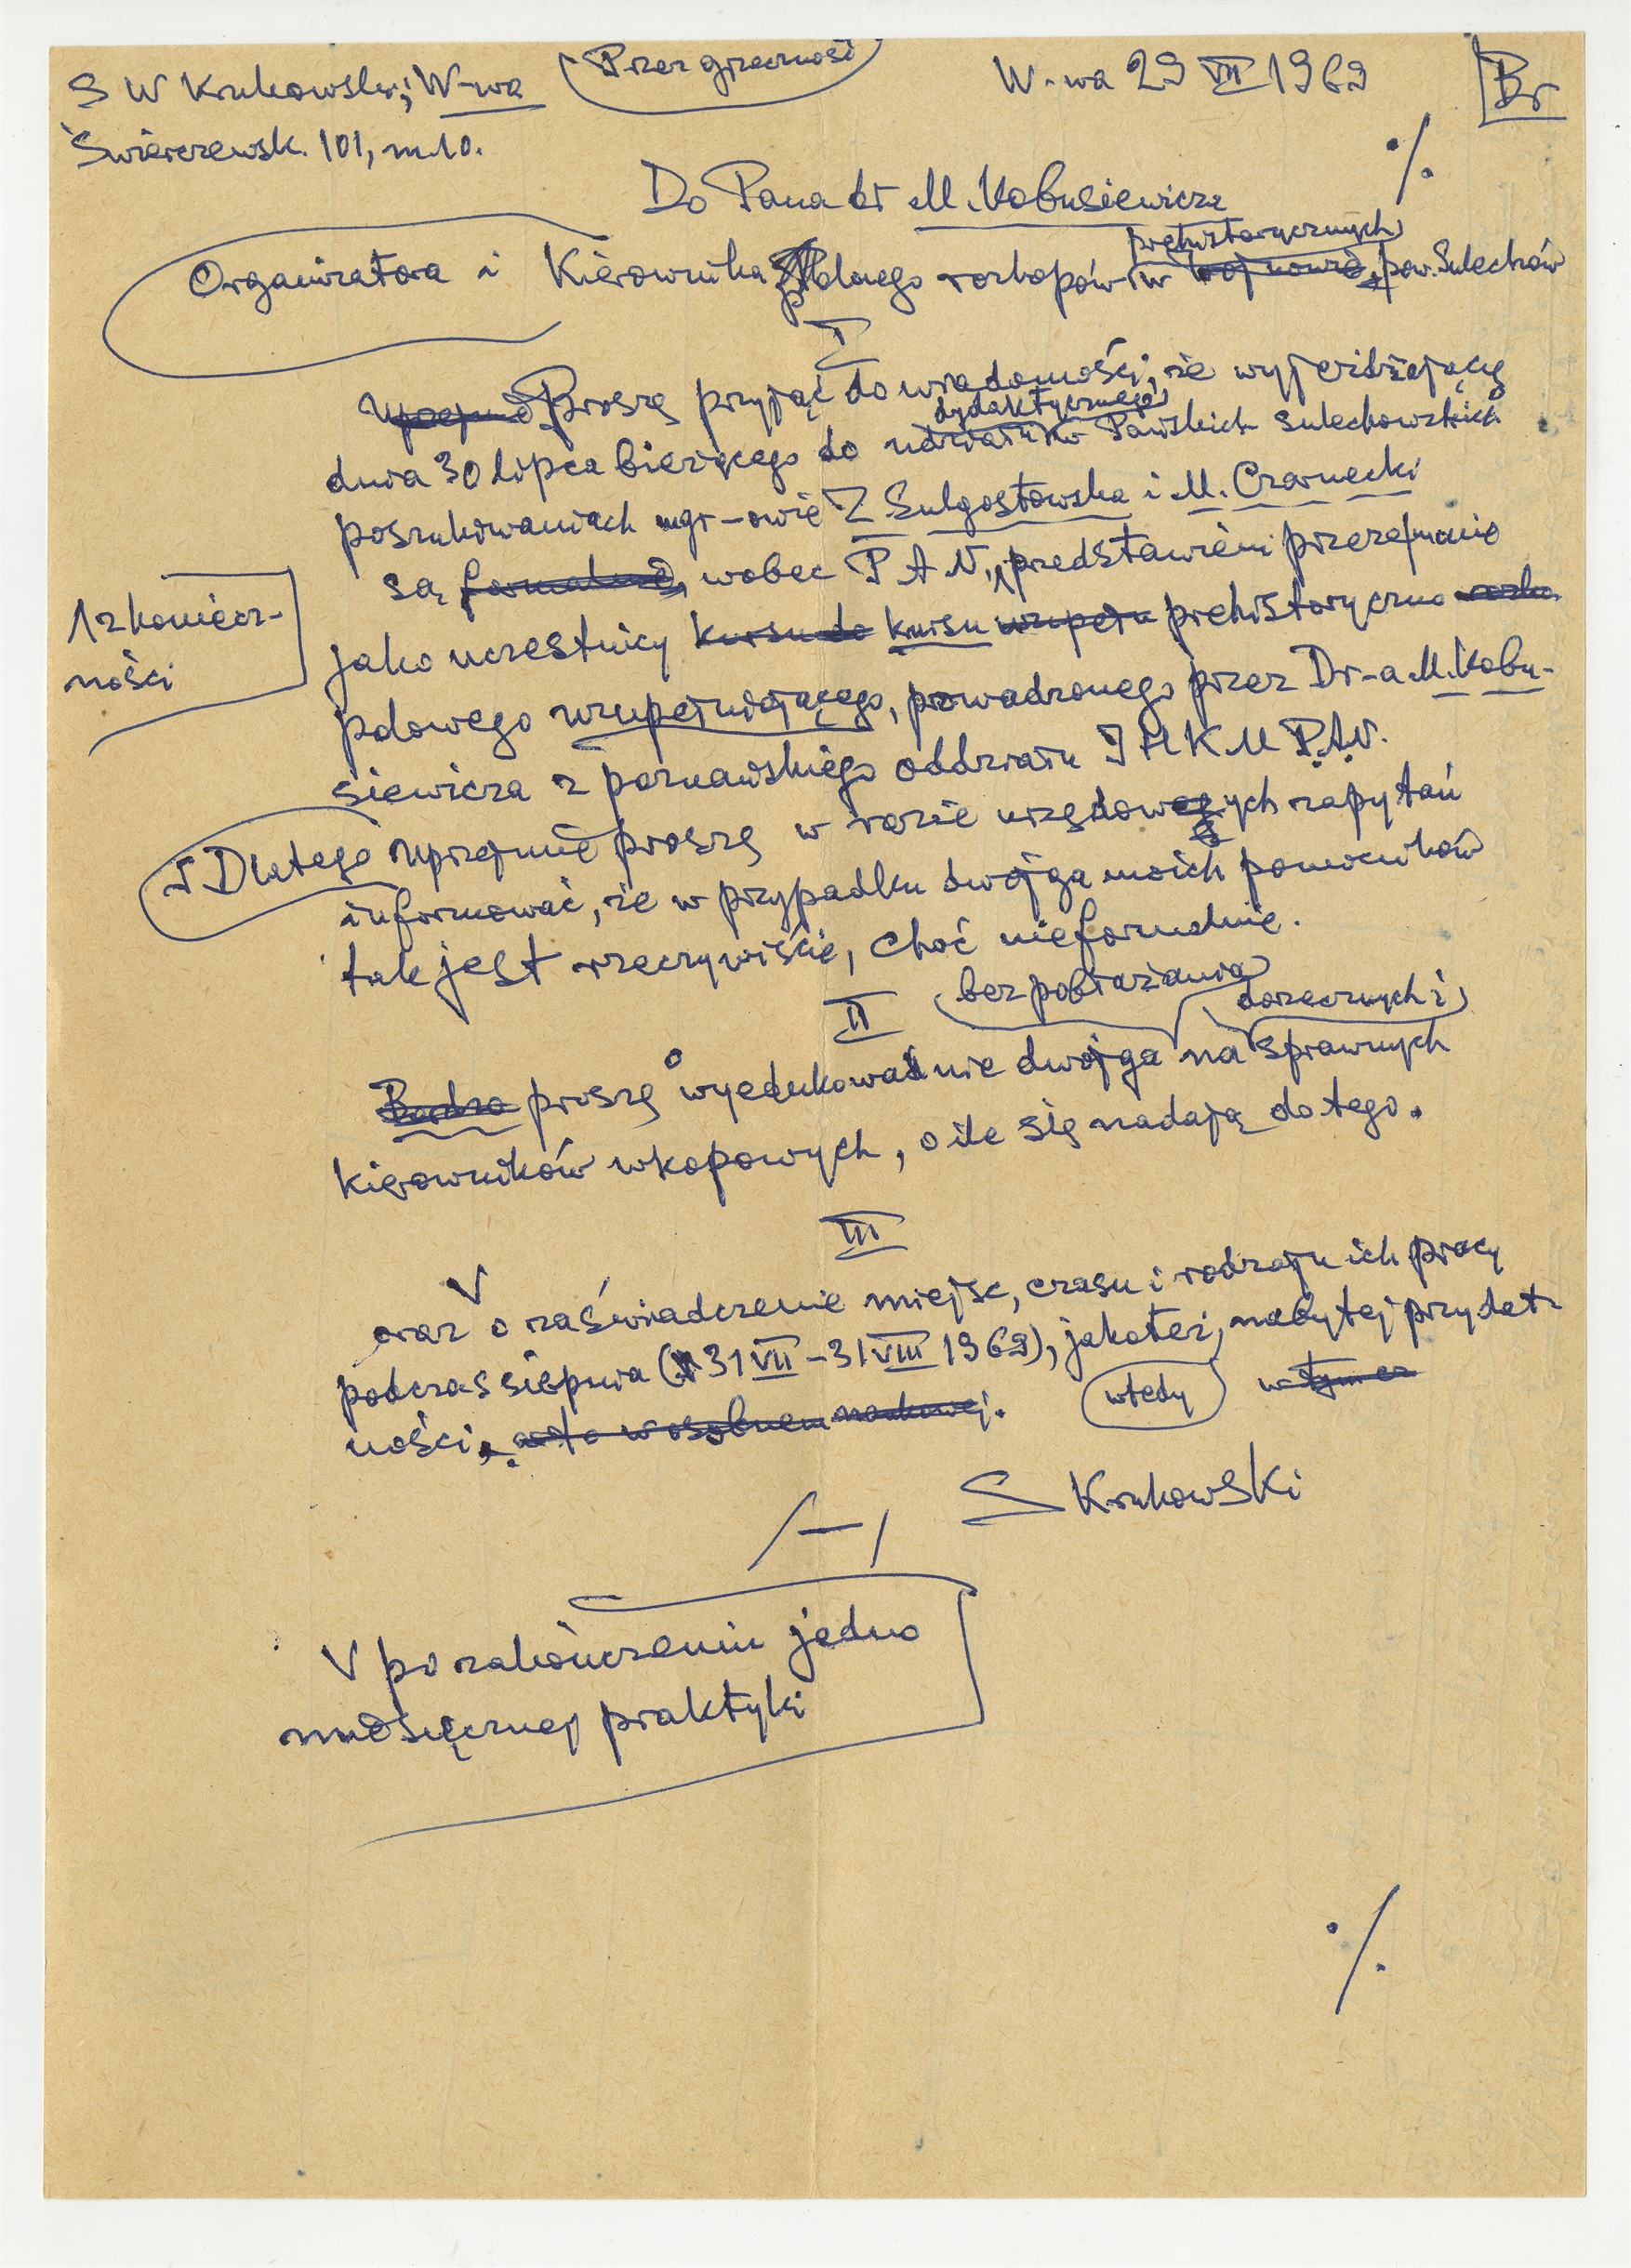 S W Krukowski; W-wa
Przez grzeczność
W-wa 29 VII 1969
Br
Świerczewsk. 101, m. 10.
./.
Do Pana dr M. Kobusiewicza
prehistorycznych
Organizatora i Kierownika polnego rozkopów w pow. Sulechów
I
Proszę przyjąć do wiadomości, że wyjeżdżający
dydaktycznego
dnia 30 lipca bieżącego do udziału w Pańskich sulechowskich
poszukiwaniach mgr-owie Z Sulgostowska i M. Czarnecki
są formalnie, wobec P A N, przedstawieni przeze mnie
1 z koniecz-
ności
jako uczestnicy kursu do kursu uzupełn prehistoryczno rozko
polowego uzupełniającego, prowadzonego przez Dr-a M. Kobu-
siewicza z poznańskiego oddziału I H K M P.A.N.
I Dlatego uprzejmie proszę w razie urzędowych zapytań
informować, że w przypadku dwojga moich pomocników
tak jest rzeczywiście, choć nieformalnie.
II
bez pobłażania
dorzecznych i
Bardzo proszę o wyedukowanie dwojga na sprawnych
kierowników wkopowych, o ile się nadają do tego.
III
V
oraz o zaświadczenie miejsc, czasu i rodzaju ich pracy
podczas sierpnia (31 VII – 31 VIII 1969), jakoteż, nabytej przydat-
ności.
wtedy
S Krukowski
/—/
V po zakończeniu jedno
miesięcznej praktyki
./.